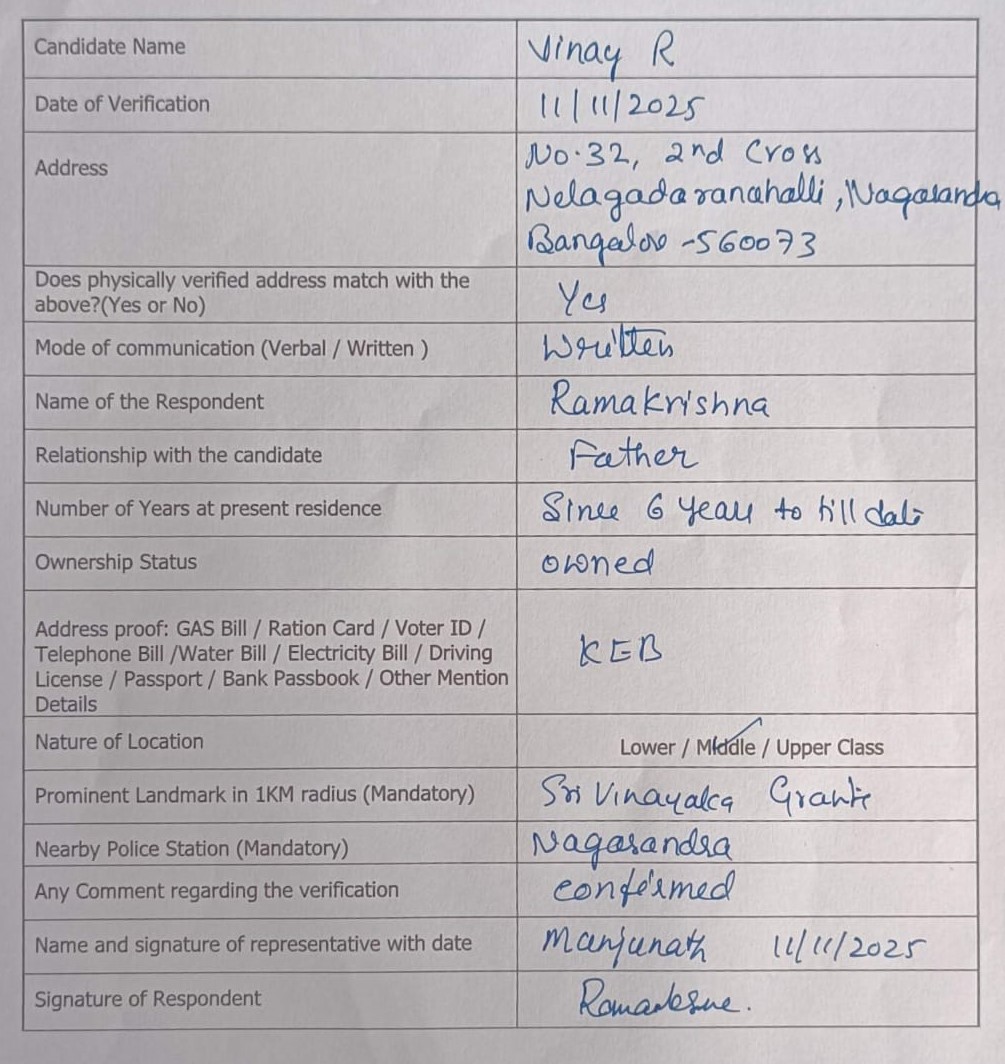 Candidate Name Vinay R
Date of Verification 11/11/2025
Address No.32, 2nd Cross
Nelagadaranahalli, Nagasandra
Bangalore -560073
Does physically verified address match with the
above?(Yes or No) Yes
Mode of communication (Verbal / Written ) Written
Name of the Respondent Ramakrishna
Relationship with the candidate Father
Number of Years at present residence Since 6 years to till date
Ownership Status owned
Address proof: GAS Bill / Ration Card / Voter ID /
Telephone Bill /Water Bill / Electricity Bill / Driving
License / Passport / Bank Passbook / Other Mention
Details KEB
Nature of Location Lower / Middle / Upper Class
Prominent Landmark in 1KM radius (Mandatory) Sri Vinayaka
Nearby Police Station (Mandatory) Nagasandra
Any Comment regarding the verification confirmed
Name and signature of representative with date Manjunath 11/11/2025
Signature of Respondent